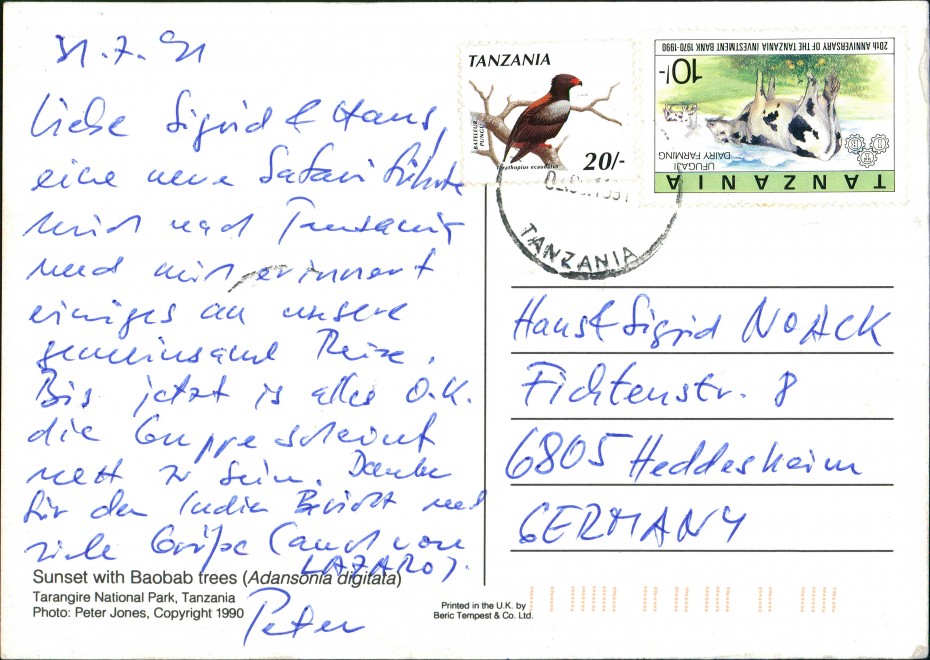 31.7.91
Liebe Sigrid & Hans,
eine neue Safari führte
mich nach Tansania
und mich erinnert
einiges an unsere
gemeinsame Reise.
Bis jetzt is alles O.K.
die Gruppe scheint
nett zu sein. Danke
für den Indien Bericht und
viele Grüße (auch von
LAZARO).
Peter
Sunset with Baobab trees (Adansonia digitata)
Tarangire National Park, Tanzania
Photo: Peter Jones, Copyright 1990
Printed in the U.K. by
Beric Tempest & Co. Ltd.
TANZANIA
BATELEUR
PUNGU
20/-
TANZANIA
UFUGAJI
DAIRY FARMING
10/-
20th ANNIVERSARY OF THE TANZANIA INVESTMENT BANK 1970-1990
TANZANIA
Hans & Sigrid NOACK
Fichtenstr. 8
6805 Heddesheim
GERMANY